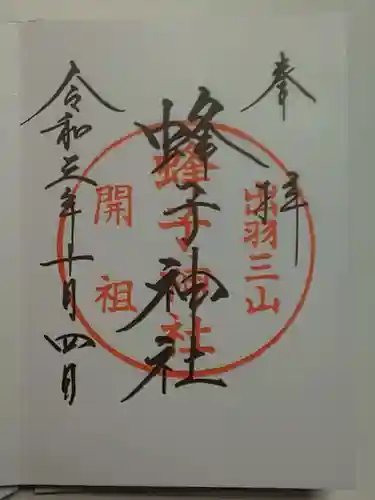 奉拝
蜂子神社
令和三年十月四日
出羽三山
蜂子神社
開祖